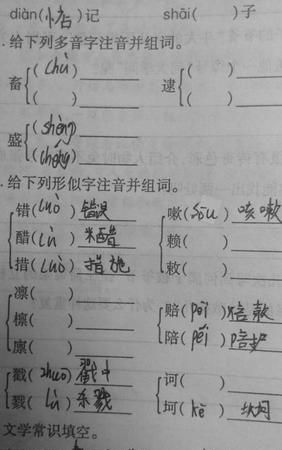 diàn(惦)记 shāi( )子
.给下列多音字注音并组词。
畜{(chù) 逮{( )
( ) ( )
盛{(shèng)
(chéng)
.给下列形似字注音并组词。
错(cuò)错误 嗽(sòu)咳嗽
醋(cù)米醋 赖( )
措(cuò)措施 敕( )
凛( )
檩( ) 赔(péi)赔款
廪( ) 陪(péi)陪护
戳(chuō)戳中 诃( )
戮(lù)杀戮 坷(kě)坎坷
文学常识填空。